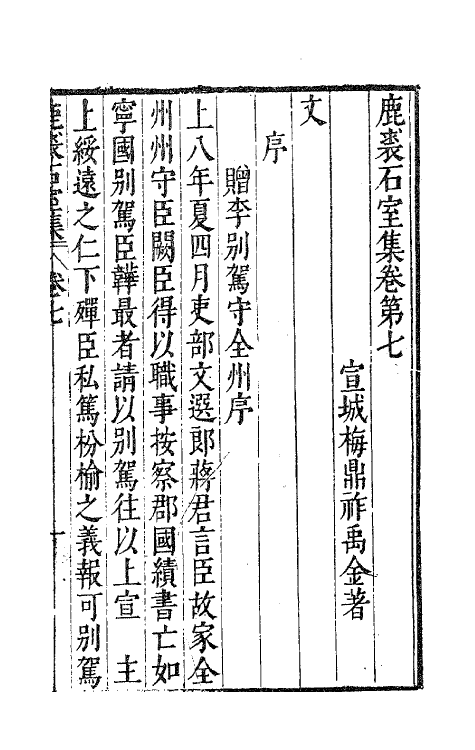 鹿裘石室集卷第七
宣城梅鼎祚禹金著
文
序
贈李別駕守全州序
上八年夏四月吏部文選郎蔣君言臣故家全
州州守臣闕臣得以職事按察郡國績書亡如
寧國別駕臣韡最者請以別駕往以上宣　主
上綏遠之仁下殫臣私篤枌榆之義報可別駕
鹿裘石室集　卷七　一